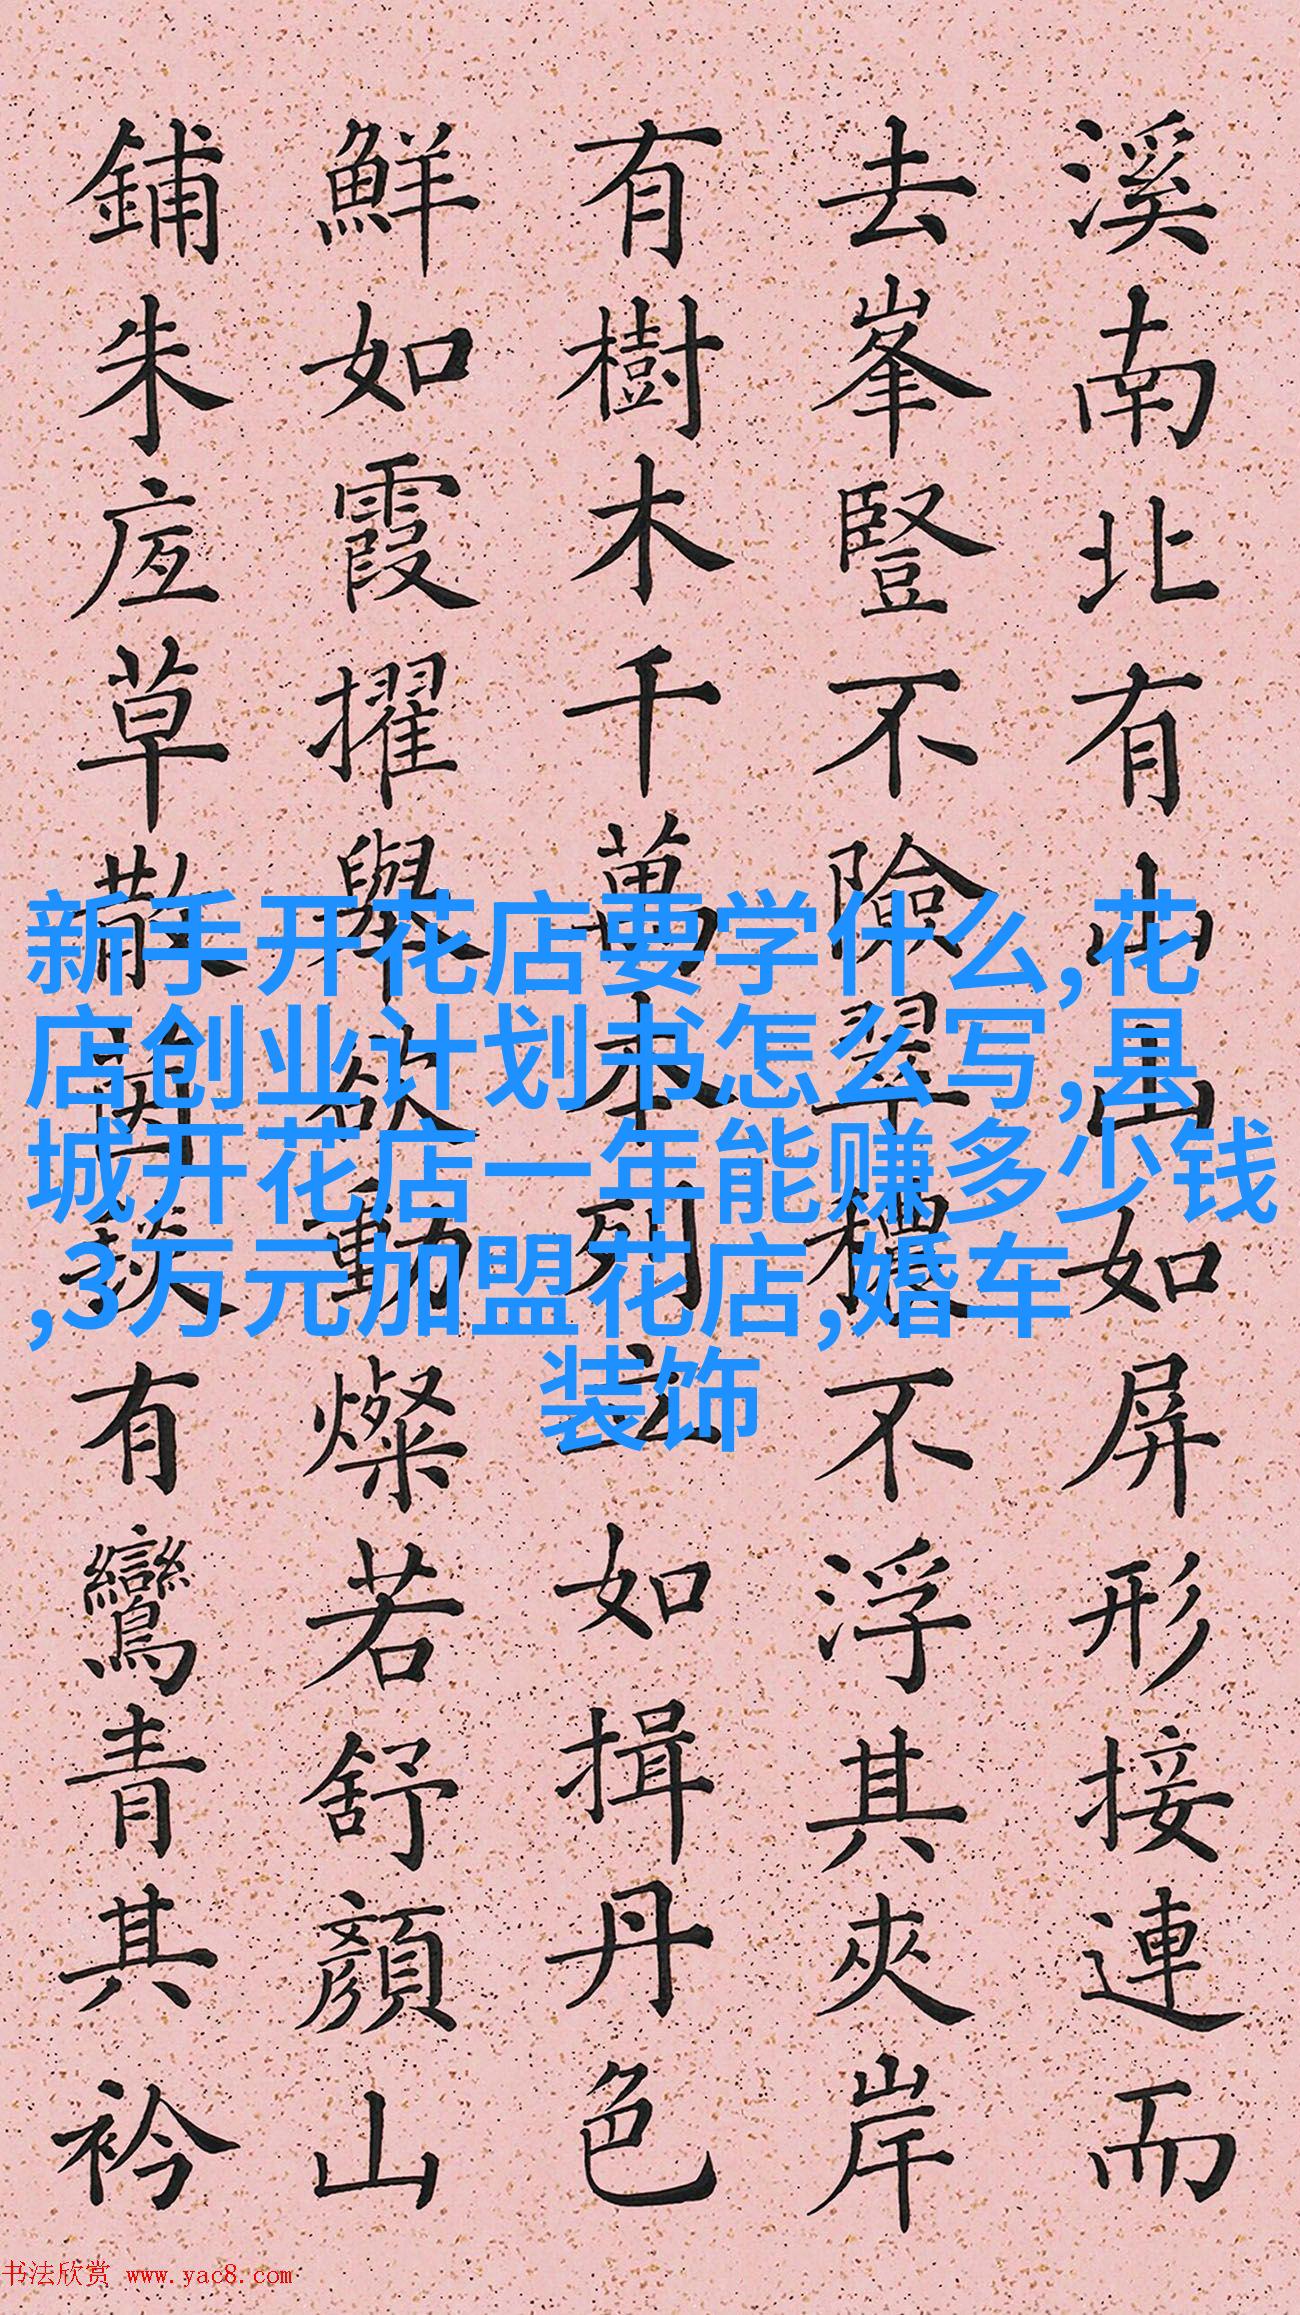 溪南北有山山如屏形接連而
去峯豎不險翠穠不浮其夾岸
有樹木千萬本列立如揖丹色
鮮如霞擢舉欲動燦若舒顏山
鋪朱草散茵有鸞青其衿
新手开花店要学什么,花
店创业计划书怎么写,县
城开花店一年能赚多少钱
,3万元加盟花店,婚车
装饰
书法欣赏 www.yac8.com